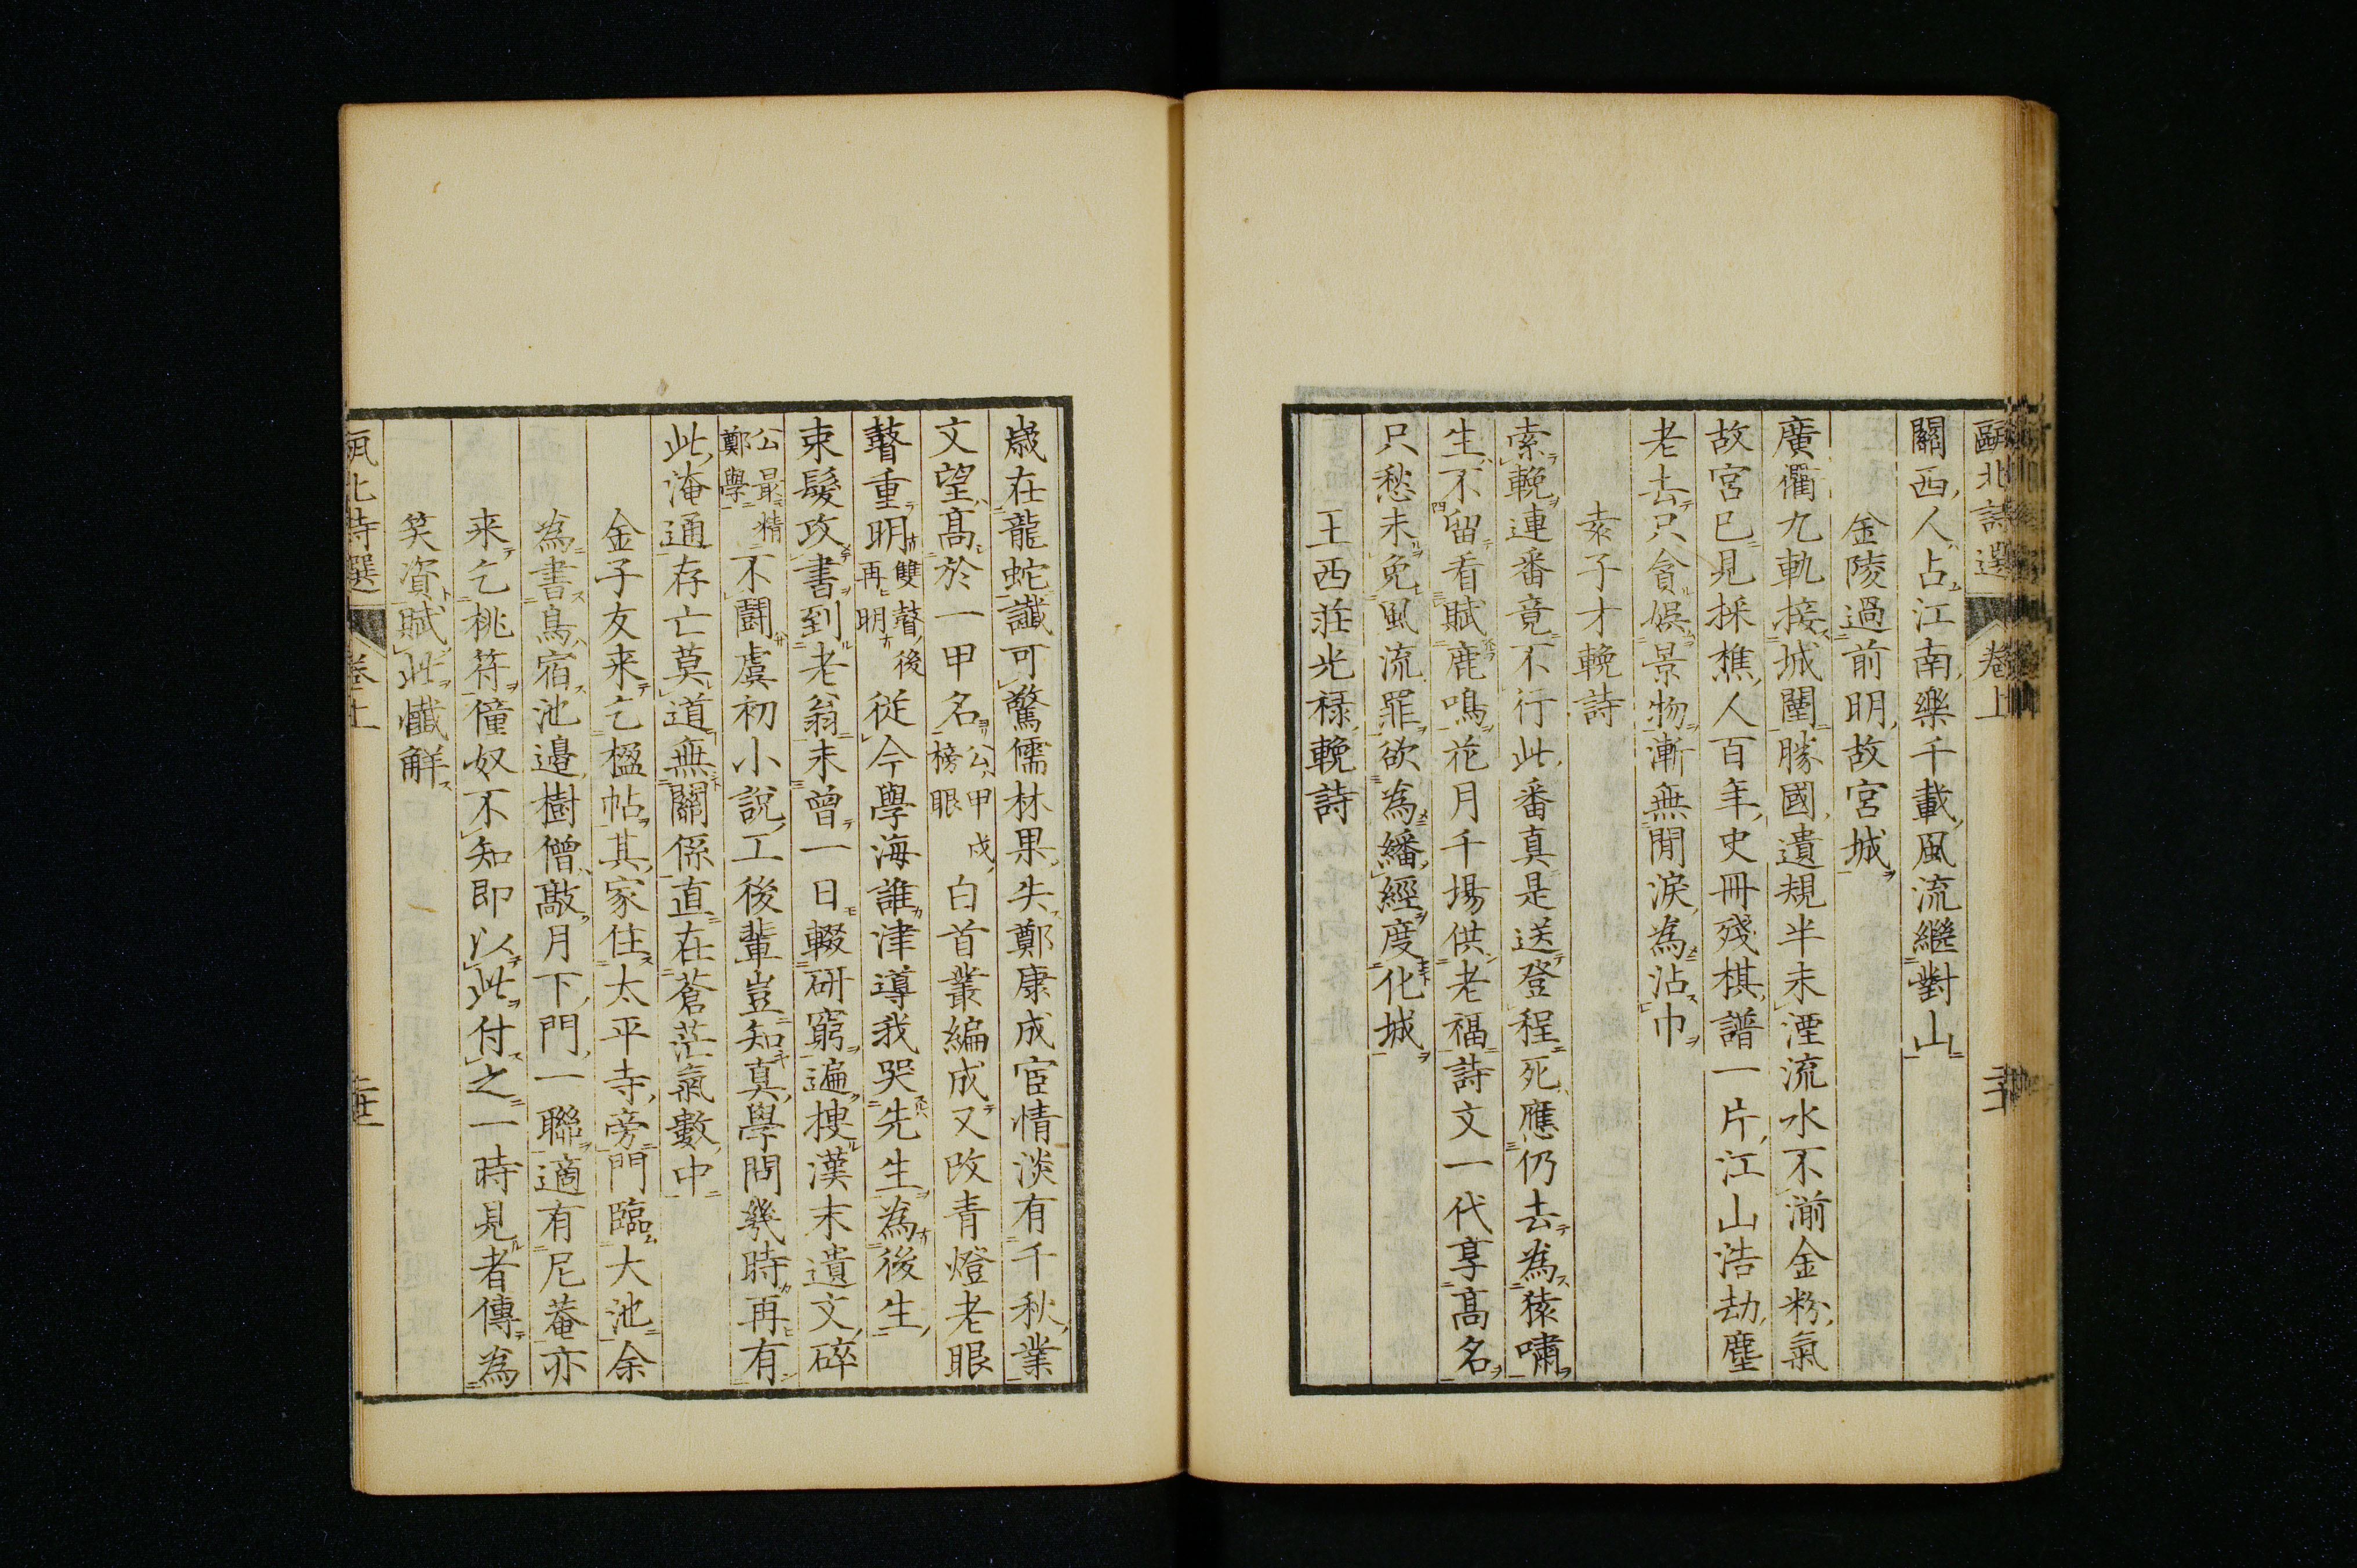 甌北詩選 卷上
關西人占江南樂千載風流繼對山
金陵過前明故宮城
廣衢九軌接城闉勝國遺規半未湮流水不湔金粉氣
故宮已見採樵人百年史冊殘棋譜一片江山浩劫塵
老去只貪娯景物漸無閒淚為沾巾
袁子才輓詩
索輓連番竟不行此番真是送登程死應仍去為猿嘯
生不留看賦鹿鳴花月千場供老福詩文一代享高名
只愁未免風流罪欲為繙經度化城
王西莊光禄輓詩
歲在龍蛇讖可驚儒林果失鄭康成宦情淡有千秋業
文望高於一甲名公甲戌榜眼白首叢編成又改青燈老眼
瞽重明雙瞽後再明從今學海誰津導我哭先生為後生
束髮攻書到老翁未曾一日輟研窮遍搜漢末遺文碎
公最精鄭學不鬪虞初小說工後輩豈知真學問幾時再有
此淹通存亡莫道無關係直在蒼茫氣數中
金子友来乞楹帖其家住太平寺旁門臨大池余
為書鳥宿池邉樹僧敲月下門一聯適有尼菴亦
来乞桃符僮奴不知即以此付之一時見者傳為
笑資賦此懺解
甌北詩選 卷上